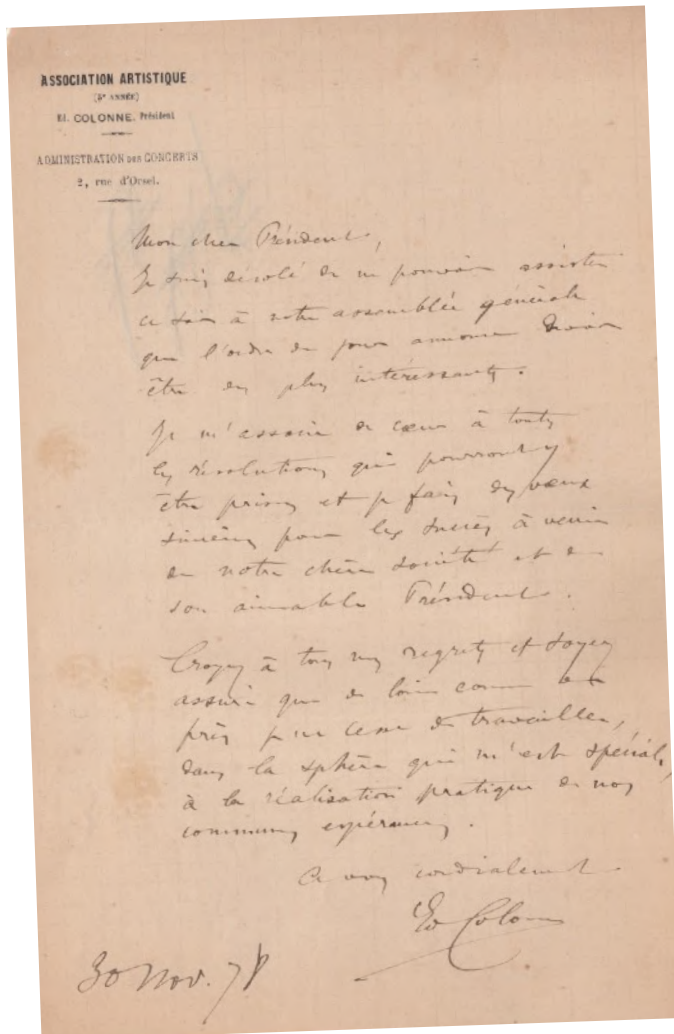 ASSOCIATION ARTISTIQUE
(5e ANNÉE)
Ed. COLONNE, Président
ADMINISTRATION DES CONCERTS
2, rue d'Orsel.
Mon cher Président,
Je suis désolé de ne pouvoir assister
ce soir à notre assemblée générale
que l'ordre du jour annonce devoir
être des plus intéressants.
Je m'associe de cœur à toutes
les résolutions qui pourront y
être prises et je fais des vœux
sincères pour les succès à venir
de notre chère société et de
son aimable Président.
Croyez à tous mes regrets et soyez
assuré que de loin comme de
près je ne cesse de travailler,
dans la sphère qui m'est spéciale,
à la réalisation pratique de nos
communes espérances.
A vous cordialement
Ed Colonne
30 Nov. 78